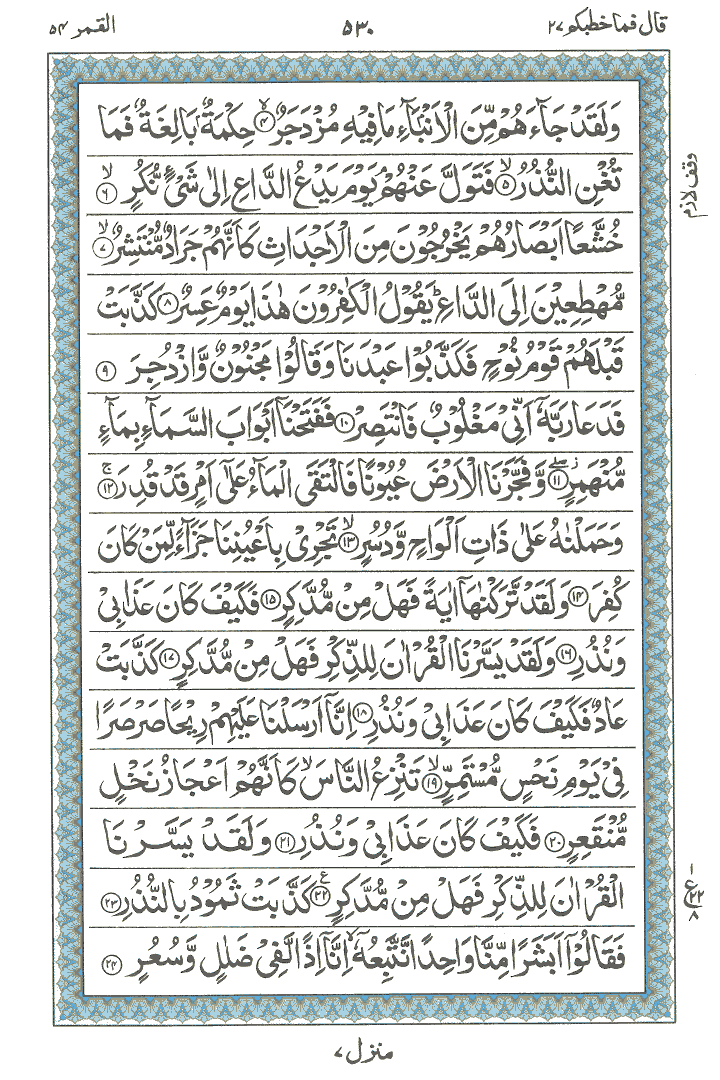 قال فما خطبكم ٢٧ ٥٣٠ القمر ٥٤
وَلَقَدْ جَآءَهُمْ مِّنَ الْاَنْۢبَآءِ مَا فِيْهِ مُزْدَجَرٌ ۙ﴿۴﴾ حِكْمَةٌۢ بَالِغَةٌ فَمَا
تُغْنِ النُّذُرُ ۙ﴿۵﴾ فَتَوَلَّ عَنْهُمْ ۘ يَوْمَ يَدْعُ الدَّاعِ اِلٰى شَىْءٍ نُّكُرٍ ۙ﴿۶﴾
خُشَّعًا اَبْصَارُهُمْ يَخْرُجُوْنَ مِنَ الْاَجْدَاثِ كَاَنَّهُمْ جَرَادٌ مُّنْتَشِرٌ ۙ﴿۷﴾
مُّهْطِعِيْنَ اِلَى الدَّاعِ ؕ يَقُوْلُ الْكٰفِرُوْنَ هٰذَا يَوْمٌ عَسِرٌ ﴿۸﴾ كَذَّبَتْ
قَبْلَهُمْ قَوْمُ نُوْحٍ فَكَذَّبُوْا عَبْدَنَا وَقَالُوْا مَجْنُوْنٌ وَّازْدُجِرَ ﴿۹﴾
فَدَعَا رَبَّهٗۤ اَنِّىْ مَغْلُوْبٌ فَانْتَصِرْ ﴿۱۰﴾ فَفَتَحْنَاۤ اَبْوَابَ السَّمَآءِ بِمَآءٍ
مُّنْهَمِرٍ ﴿۱۱﴾ وَّفَجَّرْنَا الْاَرْضَ عُيُوْنًا فَالْتَقَى الْمَآءُ عَلٰٓى اَمْرٍ قَدْ قُدِرَ ۚ﴿۱۲﴾
وَحَمَلْنٰهُ عَلٰى ذَاتِ اَلْوَاحٍ وَّدُسُرٍ ۙ﴿۱۳﴾ تَجْرِىْ بِاَعْيُنِنَا جَزَآءً لِّمَنْ كَانَ
كُفِرَ ﴿۱۴﴾ وَلَقَدْ تَّرَكْنٰهَاۤ اٰيَةً فَهَلْ مِنْ مُّدَّكِرٍ ﴿۱۵﴾ فَكَيْفَ كَانَ عَذَابِىْ
وَنُذُرِ ﴿۱۶﴾ وَلَقَدْ يَسَّرْنَا الْقُرْاٰنَ لِلذِّكْرِ فَهَلْ مِنْ مُّدَّكِرٍ ﴿۱۷﴾ كَذَّبَتْ
عَادٌ فَكَيْفَ كَانَ عَذَابِىْ وَنُذُرِ ﴿۱۸﴾ اِنَّاۤ اَرْسَلْنَا عَلَيْهِمْ رِيْحًا صَرْصَرًا
فِىْ يَوْمِ نَحْسٍ مُّسْتَمِرٍّ ۙ﴿۱۹﴾ تَنْزِعُ النَّاسَ ۙ كَاَنَّهُمْ اَعْجَازُ نَخْلٍ
مُّنْقَعِرٍ ﴿۲۰﴾ فَكَيْفَ كَانَ عَذَابِىْ وَنُذُرِ ﴿۲۱﴾ وَلَقَدْ يَسَّرْنَا
الْقُرْاٰنَ لِلذِّكْرِ فَهَلْ مِنْ مُّدَّكِرٍ ﴿۲۲﴾ كَذَّبَتْ ثَمُوْدُ بِالنُّذُرِ ﴿۲۳﴾
فَقَالُوْۤا اَبَشَرًا مِّنَّا وَاحِدًا نَّتَّبِعُهٗۤ ۙ اِنَّاۤ اِذًا لَّفِىْ ضَلٰلٍ وَّسُعُرٍ ﴿۲۴﴾
وقف لازم
١
ع ٢٢
٨
منزل ٧